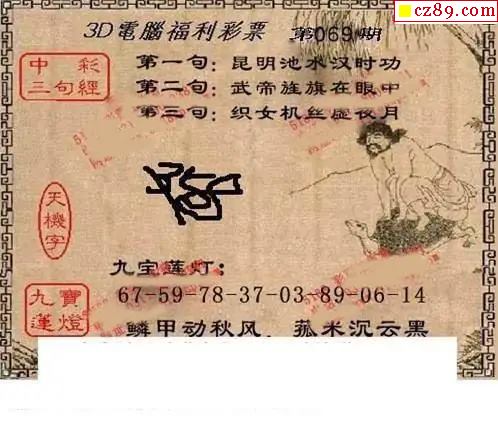 cz89.com
3D電腦福利彩票 第069期
中彩
三句經
第一句：昆明池水汉时功
第二句：武帝旌旗在眼中
第三句：织女机丝虚夜月
天機字
九宝莲灯：
九寶蓮燈
67-59-78-37-03-89-06-14
鳞甲动秋风，菰米沉云黑